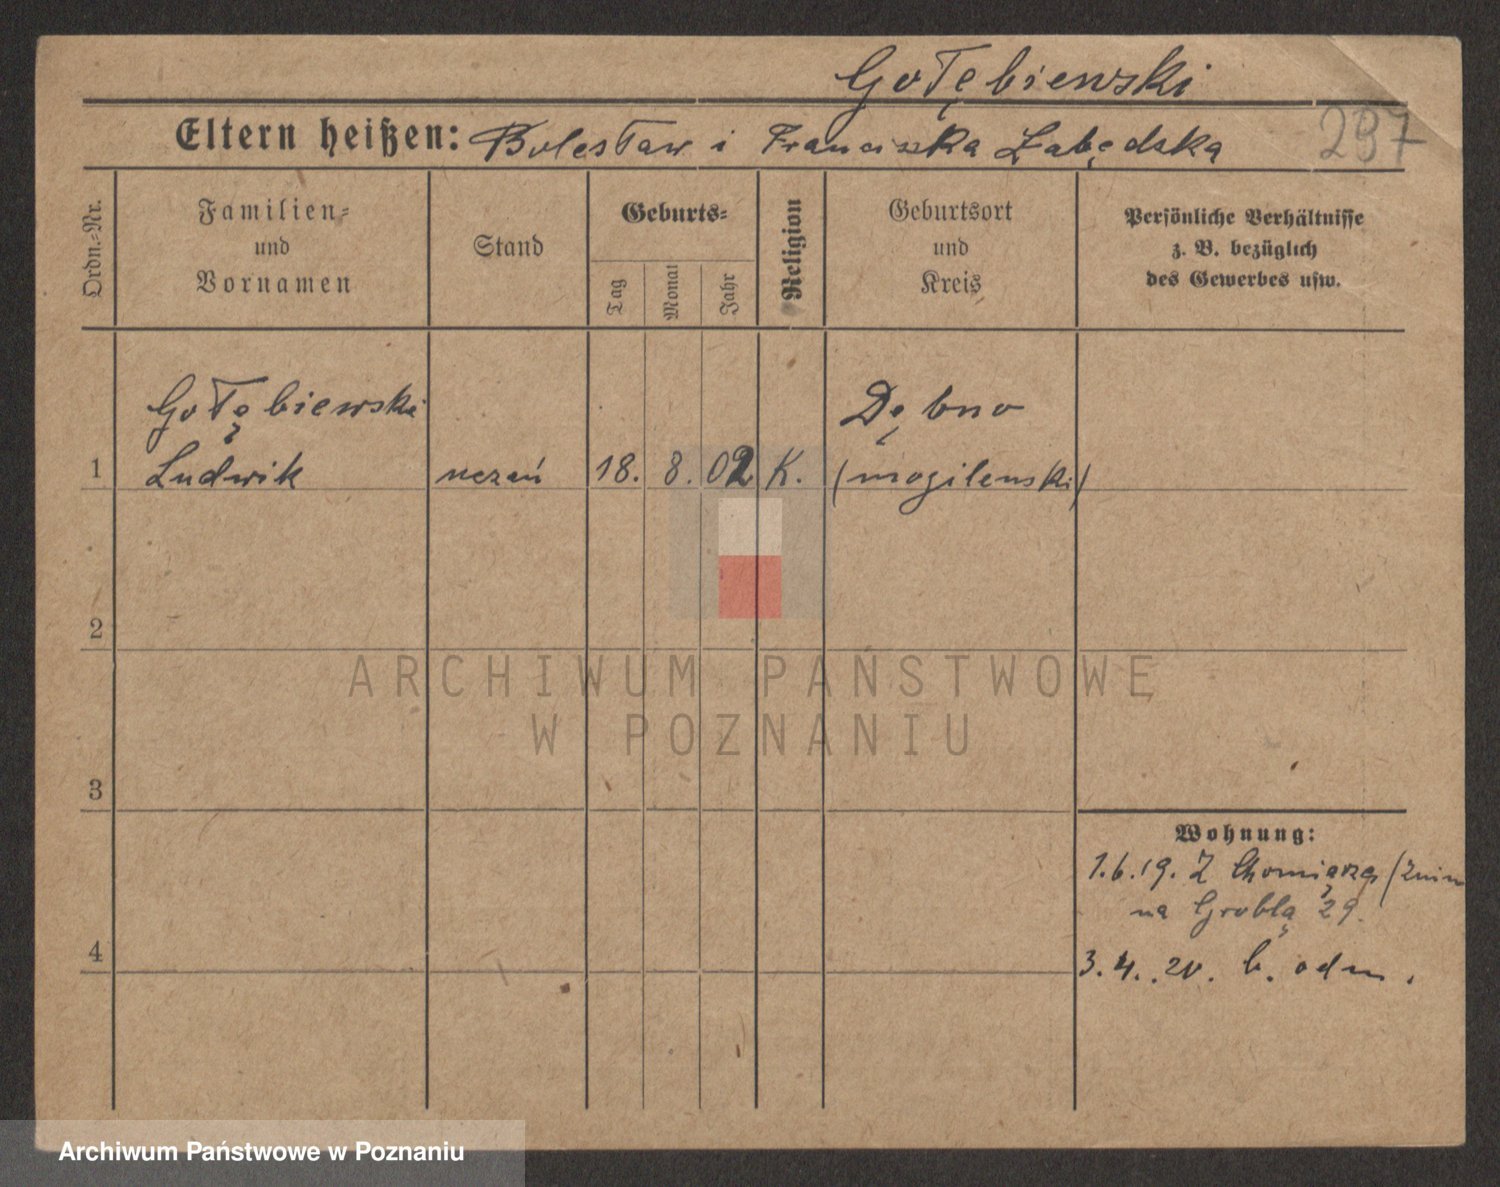 Gołębiewski
297
Eltern heißen: Bolesław i Franciszka Łabędska
Ordn.-Nr.
Familien-
und
Vornamen
Stand
Geburts-
Tag
Monat
Jahr
Religion
Geburtsort
und
Kreis
Persönliche Verhältnisse
z. B. bezüglich
des Gewerbes usw.
Gołębiewski
Dębno
1 Ludwik uczeń 18. 8. 02 K. (mogilenski)
2
ARCHIWUM PAŃSTWOWE
W POZNANIU
3
Wohnung:
1.6.19. Z Chomiąza (Żnin
na Groblą 29.
4
3.4.20. b. odm.
Archiwum Państwowe w Poznaniu